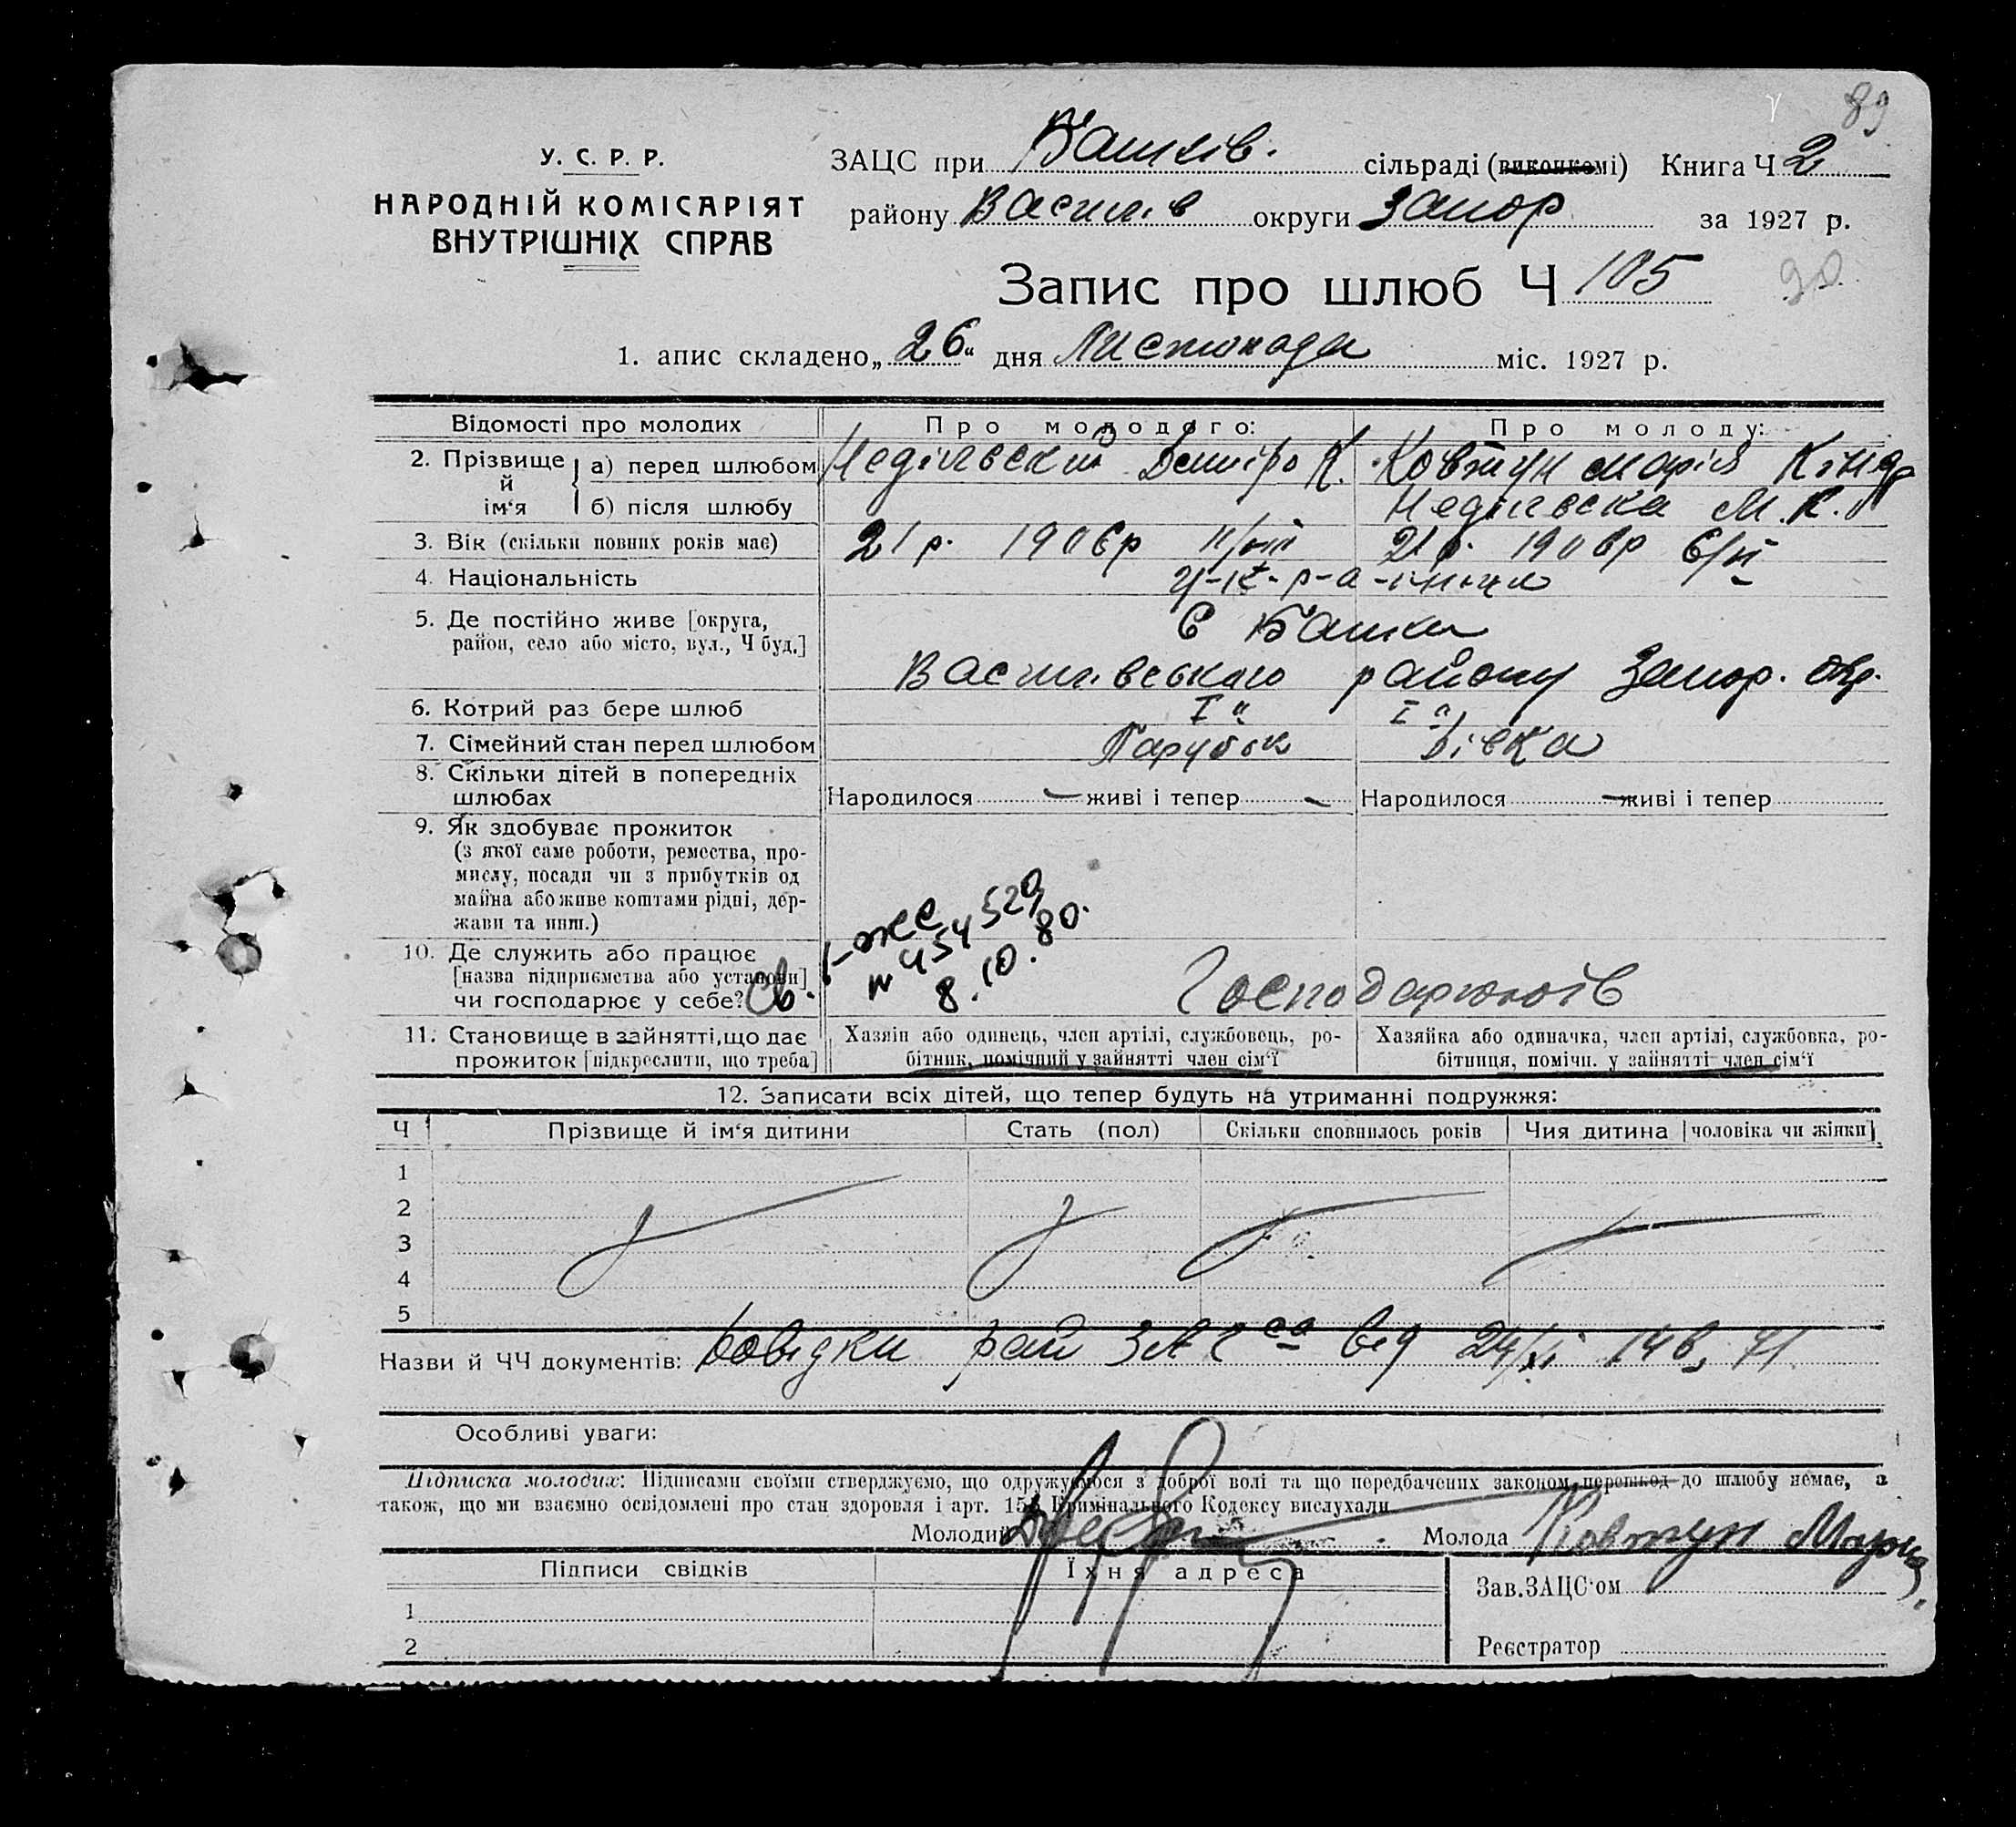 89
У. С. Р. Р.
НАРОДНІЙ КОМІСАРІЯТ
ВНУТРІШНІХ СПРАВ
ЗАЦС при сільраді (виконкомі) Книга Ч 2
району Василів округи Запор за 1927 р.
Запис про шлюб Ч 105
90
1. апис складено „26“ дня Листопада міс. 1927 р.
Відомості про молодих
Про молодого:
Про молоду:
2. Прізвище й ім‘я
а) перед шлюбом
Недільский Дмитро К.
Ковтун Марія Кіндр
б) після шлюбу
Недільска М. К.
3. Вік (скільки повних років має)
21 р. 1906 р
21 р. 1906 р 6/VI
4. Національність
У-к-р-а-їнци
5. Де постійно живе [округа,
район, село або місто, вул., Ч буд.]
Василівського району Запор. окр.
6. Котрий раз бере шлюб
I а
I а
7. Сімейний стан перед шлюбом
Парубок
Дівка
8. Скільки дітей в попередніх
шлюбах
Народилося — живі і тепер —
Народилося — живі і тепер
9. Як здобуває прожиток
(з якої саме роботи, ремества, про-
мислу, посади чи з прибутків од
майна або живе коштами рідні, дер-
жави та инш.)
10. Де служить або працює
[назва підприємства або установи]
чи господарює у себе?
св. I-ЖС
№ 454529
8.10.80.
Господарюють
11. Становище в зайнятті, що дає
прожиток [підкреслити, що треба]
Хазяїн або одинець, член артілі, службовець, ро-
бітник, помічний у зайнятті член сім‘ї
Хазяйка або одиначка, член артілі, службовка, ро-
бітниця, помічн. у зайнятті член сім‘ї
12. Записати всіх дітей, що тепер будуть на утриманні подружжя:
Ч
Прізвище й ім‘я дитини
Стать (пол)
Скільки сповнилось років
Чия дитина [чоловіка чи жінки]
1
2
3
4
5
Назви й ЧЧ документів: Довідки рай ЗАГСа від 24/XI 71
Особливі уваги:
Підписка молодих: Підписами своїми стверджуємо, що одружуємося з доброї волі та що передбачених законом перешкод до шлюбу немає, а
також, що ми взаємно освідомлені про стан здоровля і арт. 15 Кримінального Кодексу вислухали
Молодий
Молода Ковтун Мария
Підписи свідків
Їхня адреса
Зав. ЗАЦС‘ом
1
2
Реєстратор